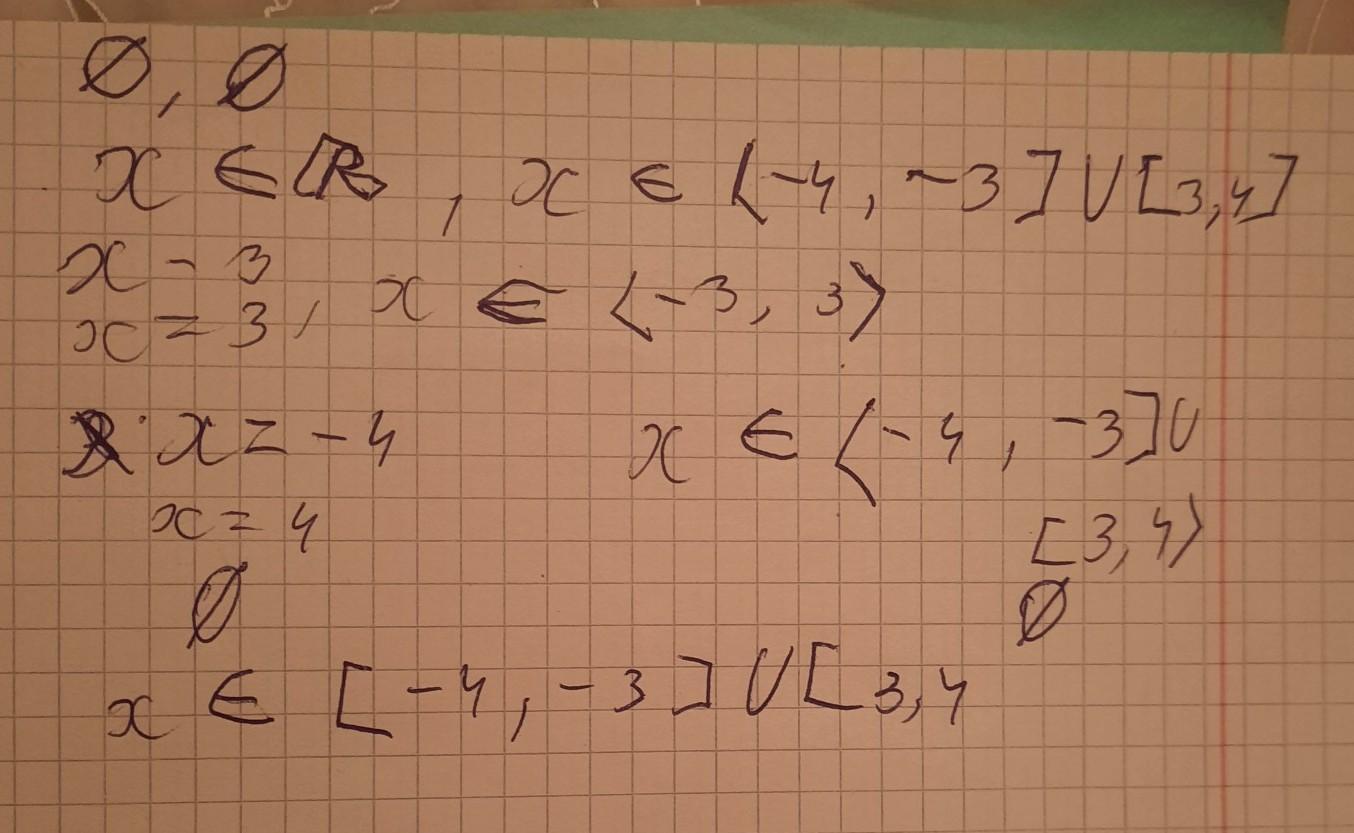 ∅, ∅
x ∈ ℝ, x ∈ ⟨-4, -3] ∪ [3,4]
x - 3
x = 3, x ∈ ⟨-3, 3⟩
x = -4 x ∈ ⟨-4, -3] ∪
x = 4 [3,4⟩
∅ ∅
x ∈ [-4, -3] ∪ [3,4